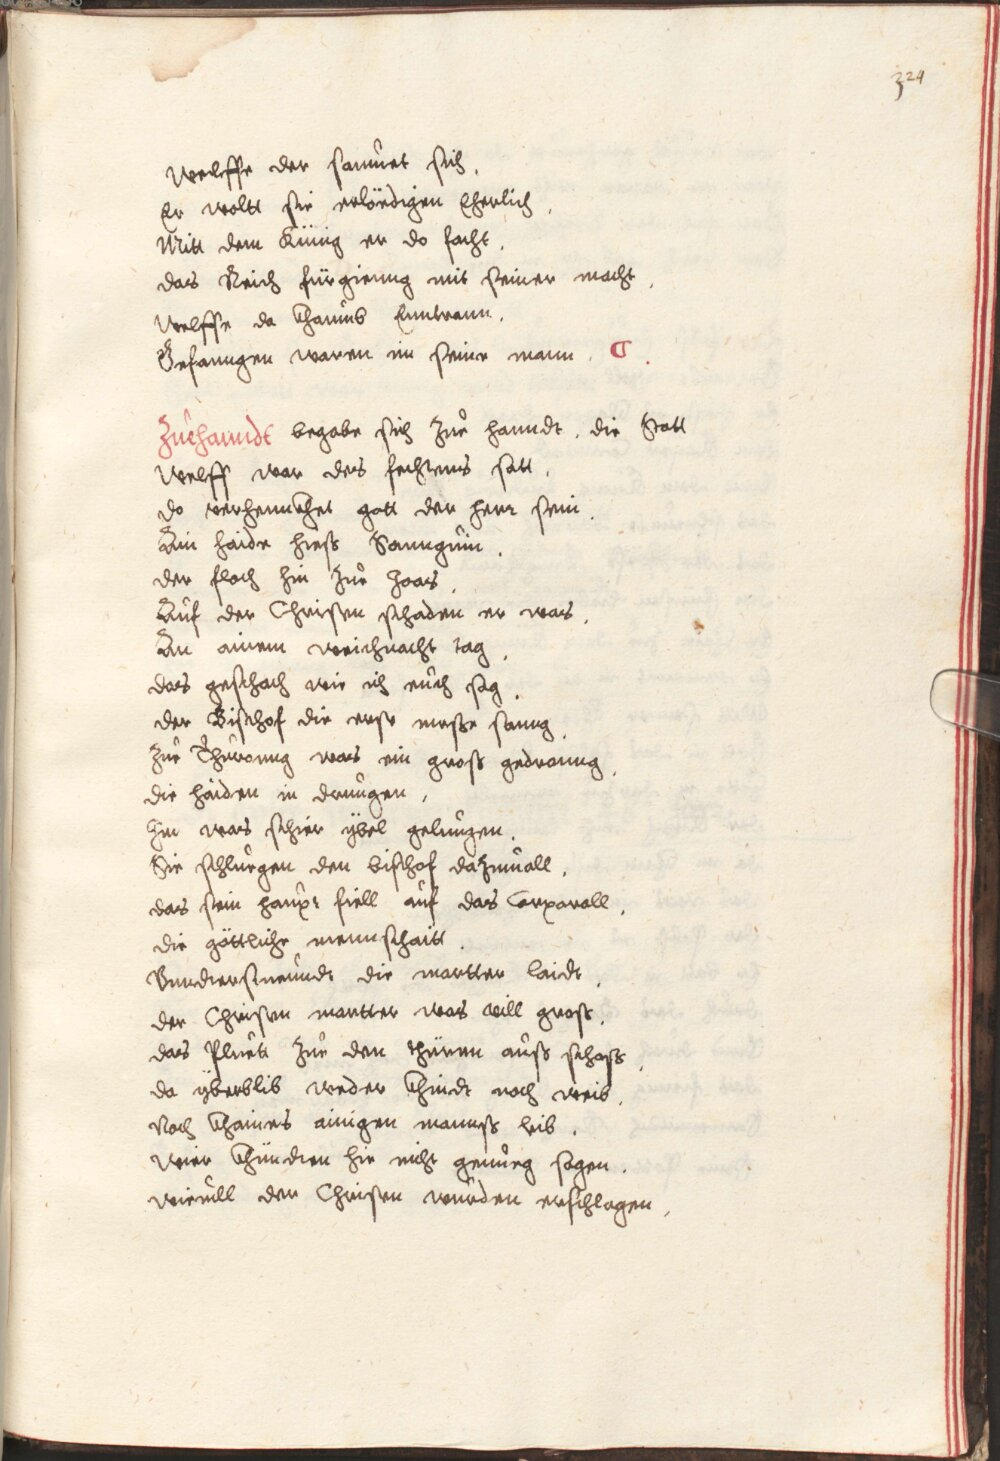 324
Welffe der samnet sich,
Er woltt sie erlördigen Eherlich,
Mitt dem Künig er do facht,
das Reich fürgienng mit seiner macht,
Welffe da khaumb Enntrann,
Gefanngen waren im seine mann,
Zuehanndt begabe sich zue hanndt, die Statt
Welff war des fechtens satt,
do verhennkhet gott der herr sein,
Ain haide hiess Sannguin,
der floch hin zue Zoas,
Auf der Christen schaden er was,
An ainem weichnacht tag,
das geschach wie ich euch sag,
der Bischof die erst messe sanng,
Zue Thüronng was ein gross gedranng,
die haiden in drungen,
Im was schier ybel gelungen,
Sie schluegen den bischof dazmall,
das sein haupt fiell auf das Corporall,
die göttliche mennschaitt,
Annderstundt die martter laidt,
der Christen martter was vill gross,
das Pluett zue den thüren auss schoss,
da yberblib weder khindt noch weib,
Noch khaines ainigen mannss leib,
Wier khündten hie nicht genueg sagen,
wieuill der Christen wurden erschlagen,